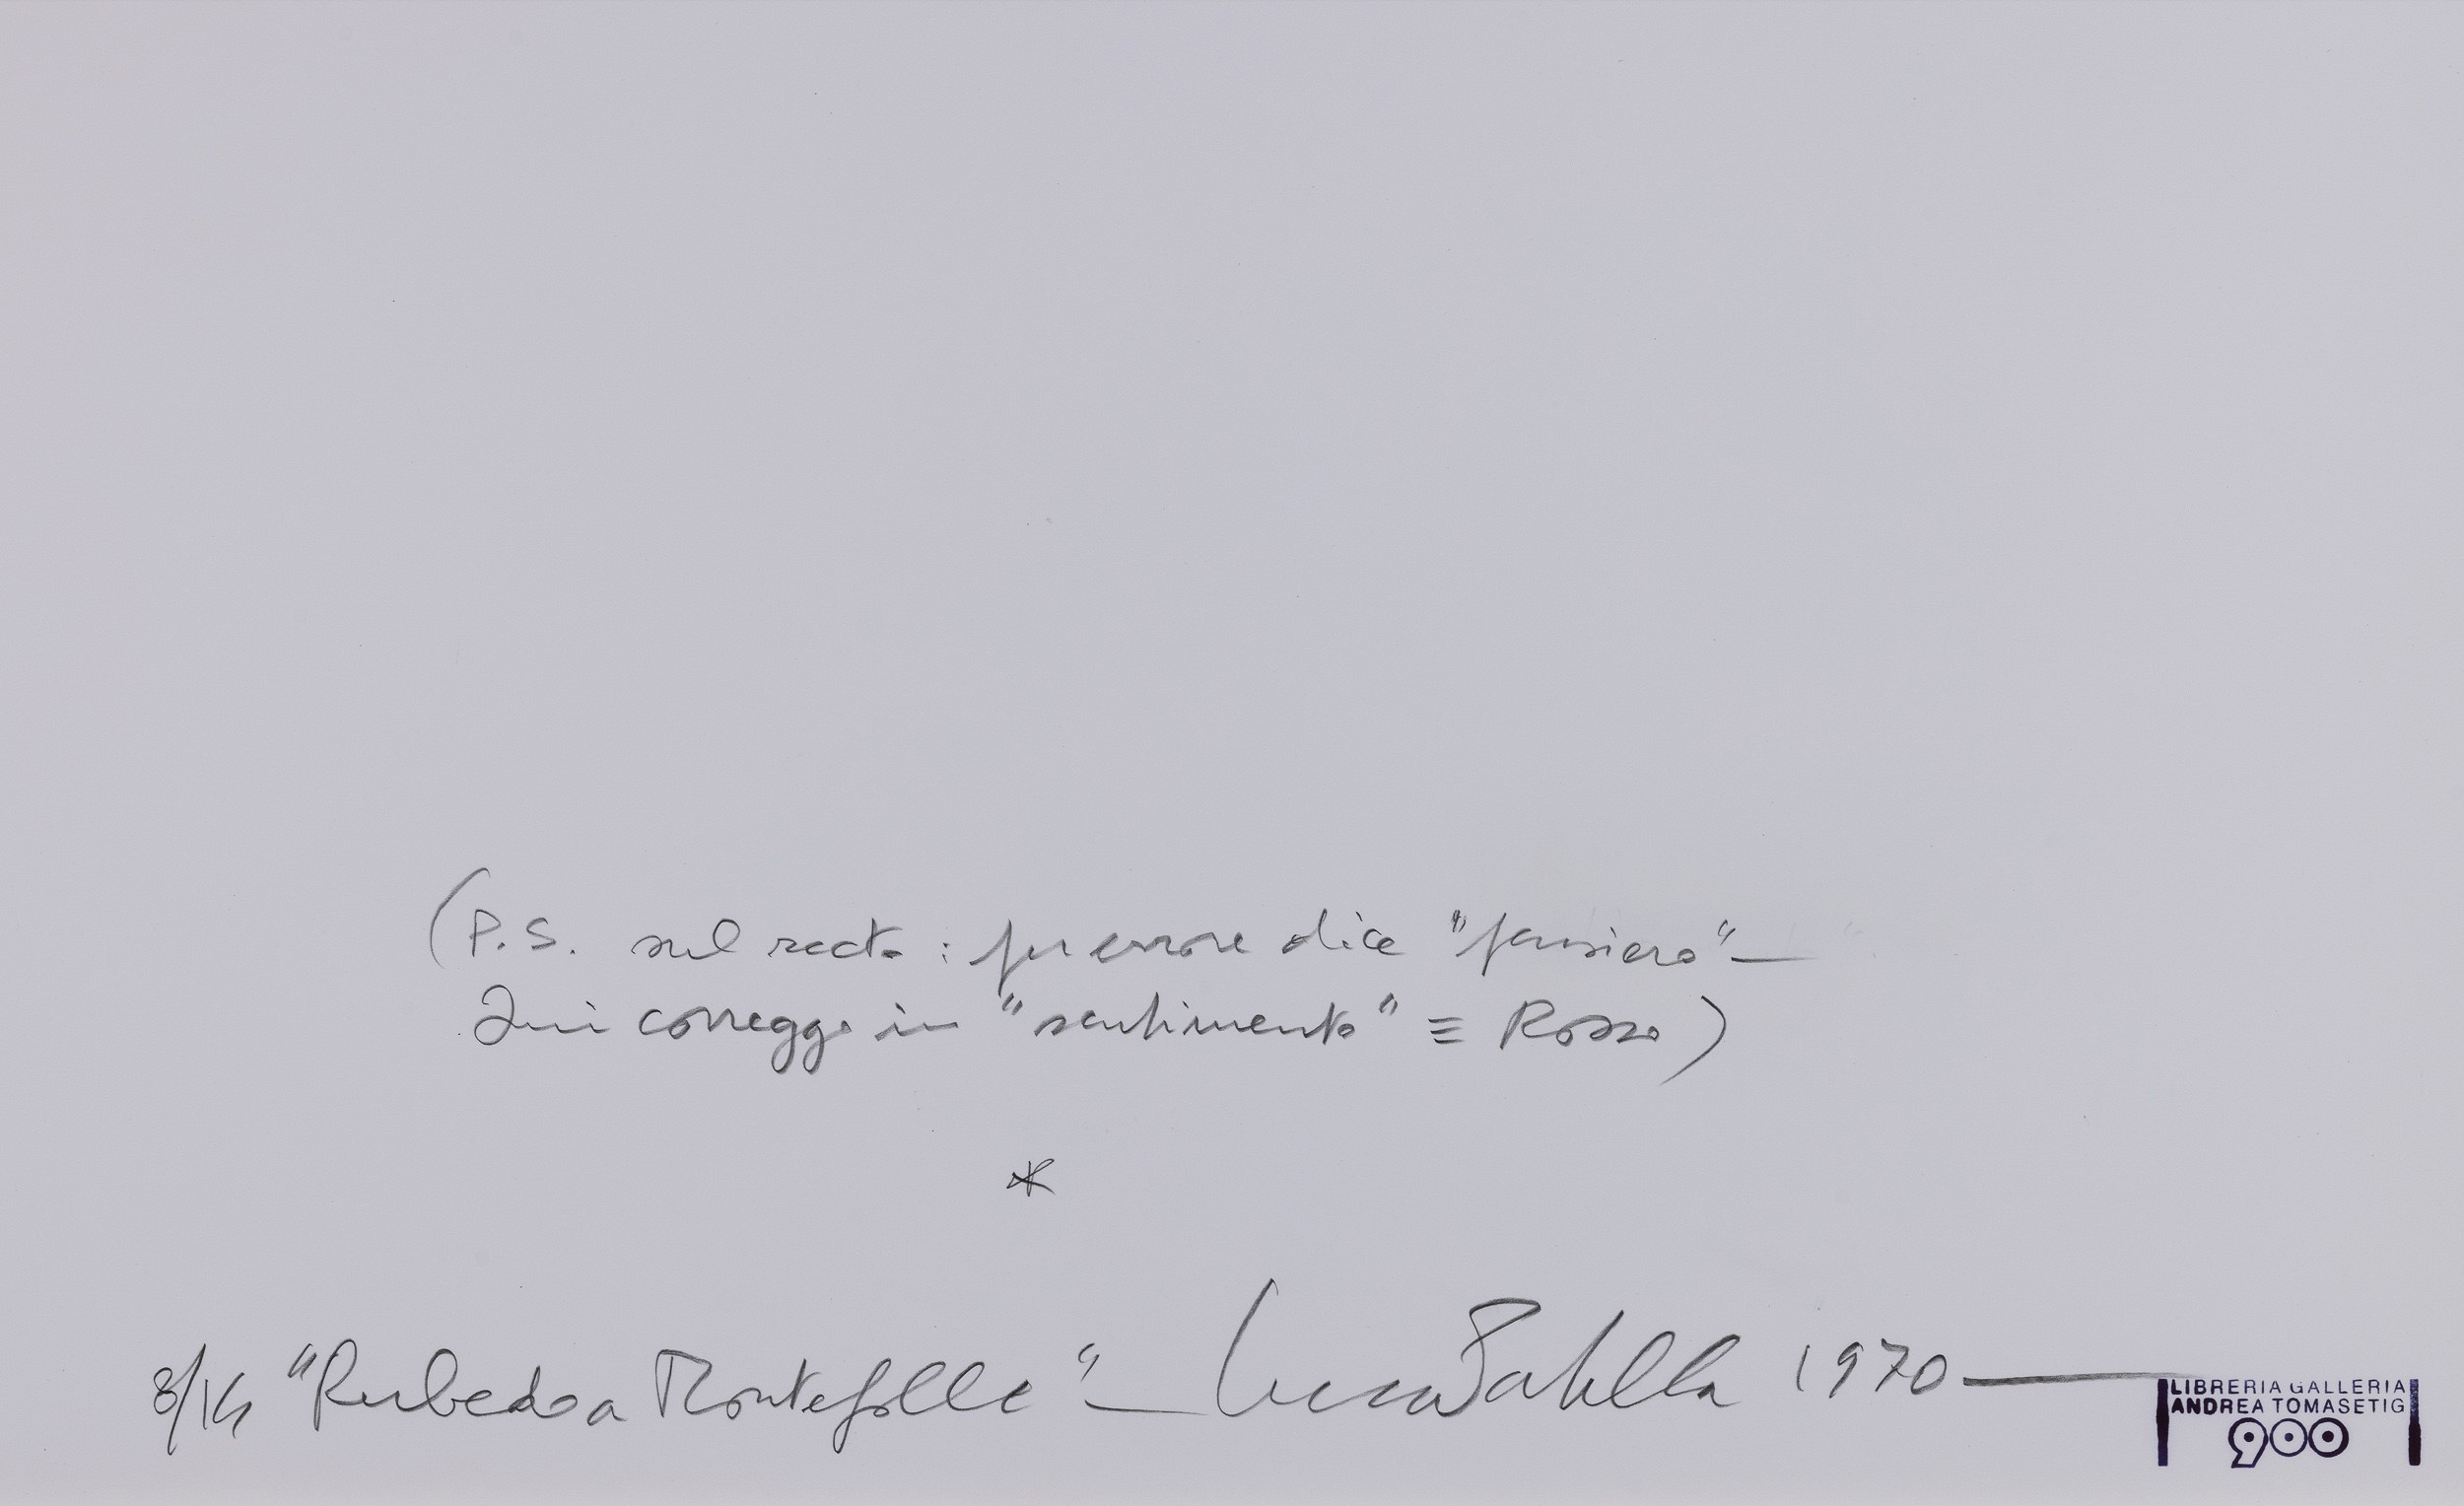 (P.S. sul recto: per errore dice "pensiero"—
Qui correggo in "sentimento" ≡ Rosso)
*
8/14 "Rubedo a Montefolle"— Luca Patella 1970—
LIBRERIA GALLERIA
ANDREA TOMASETIG
900